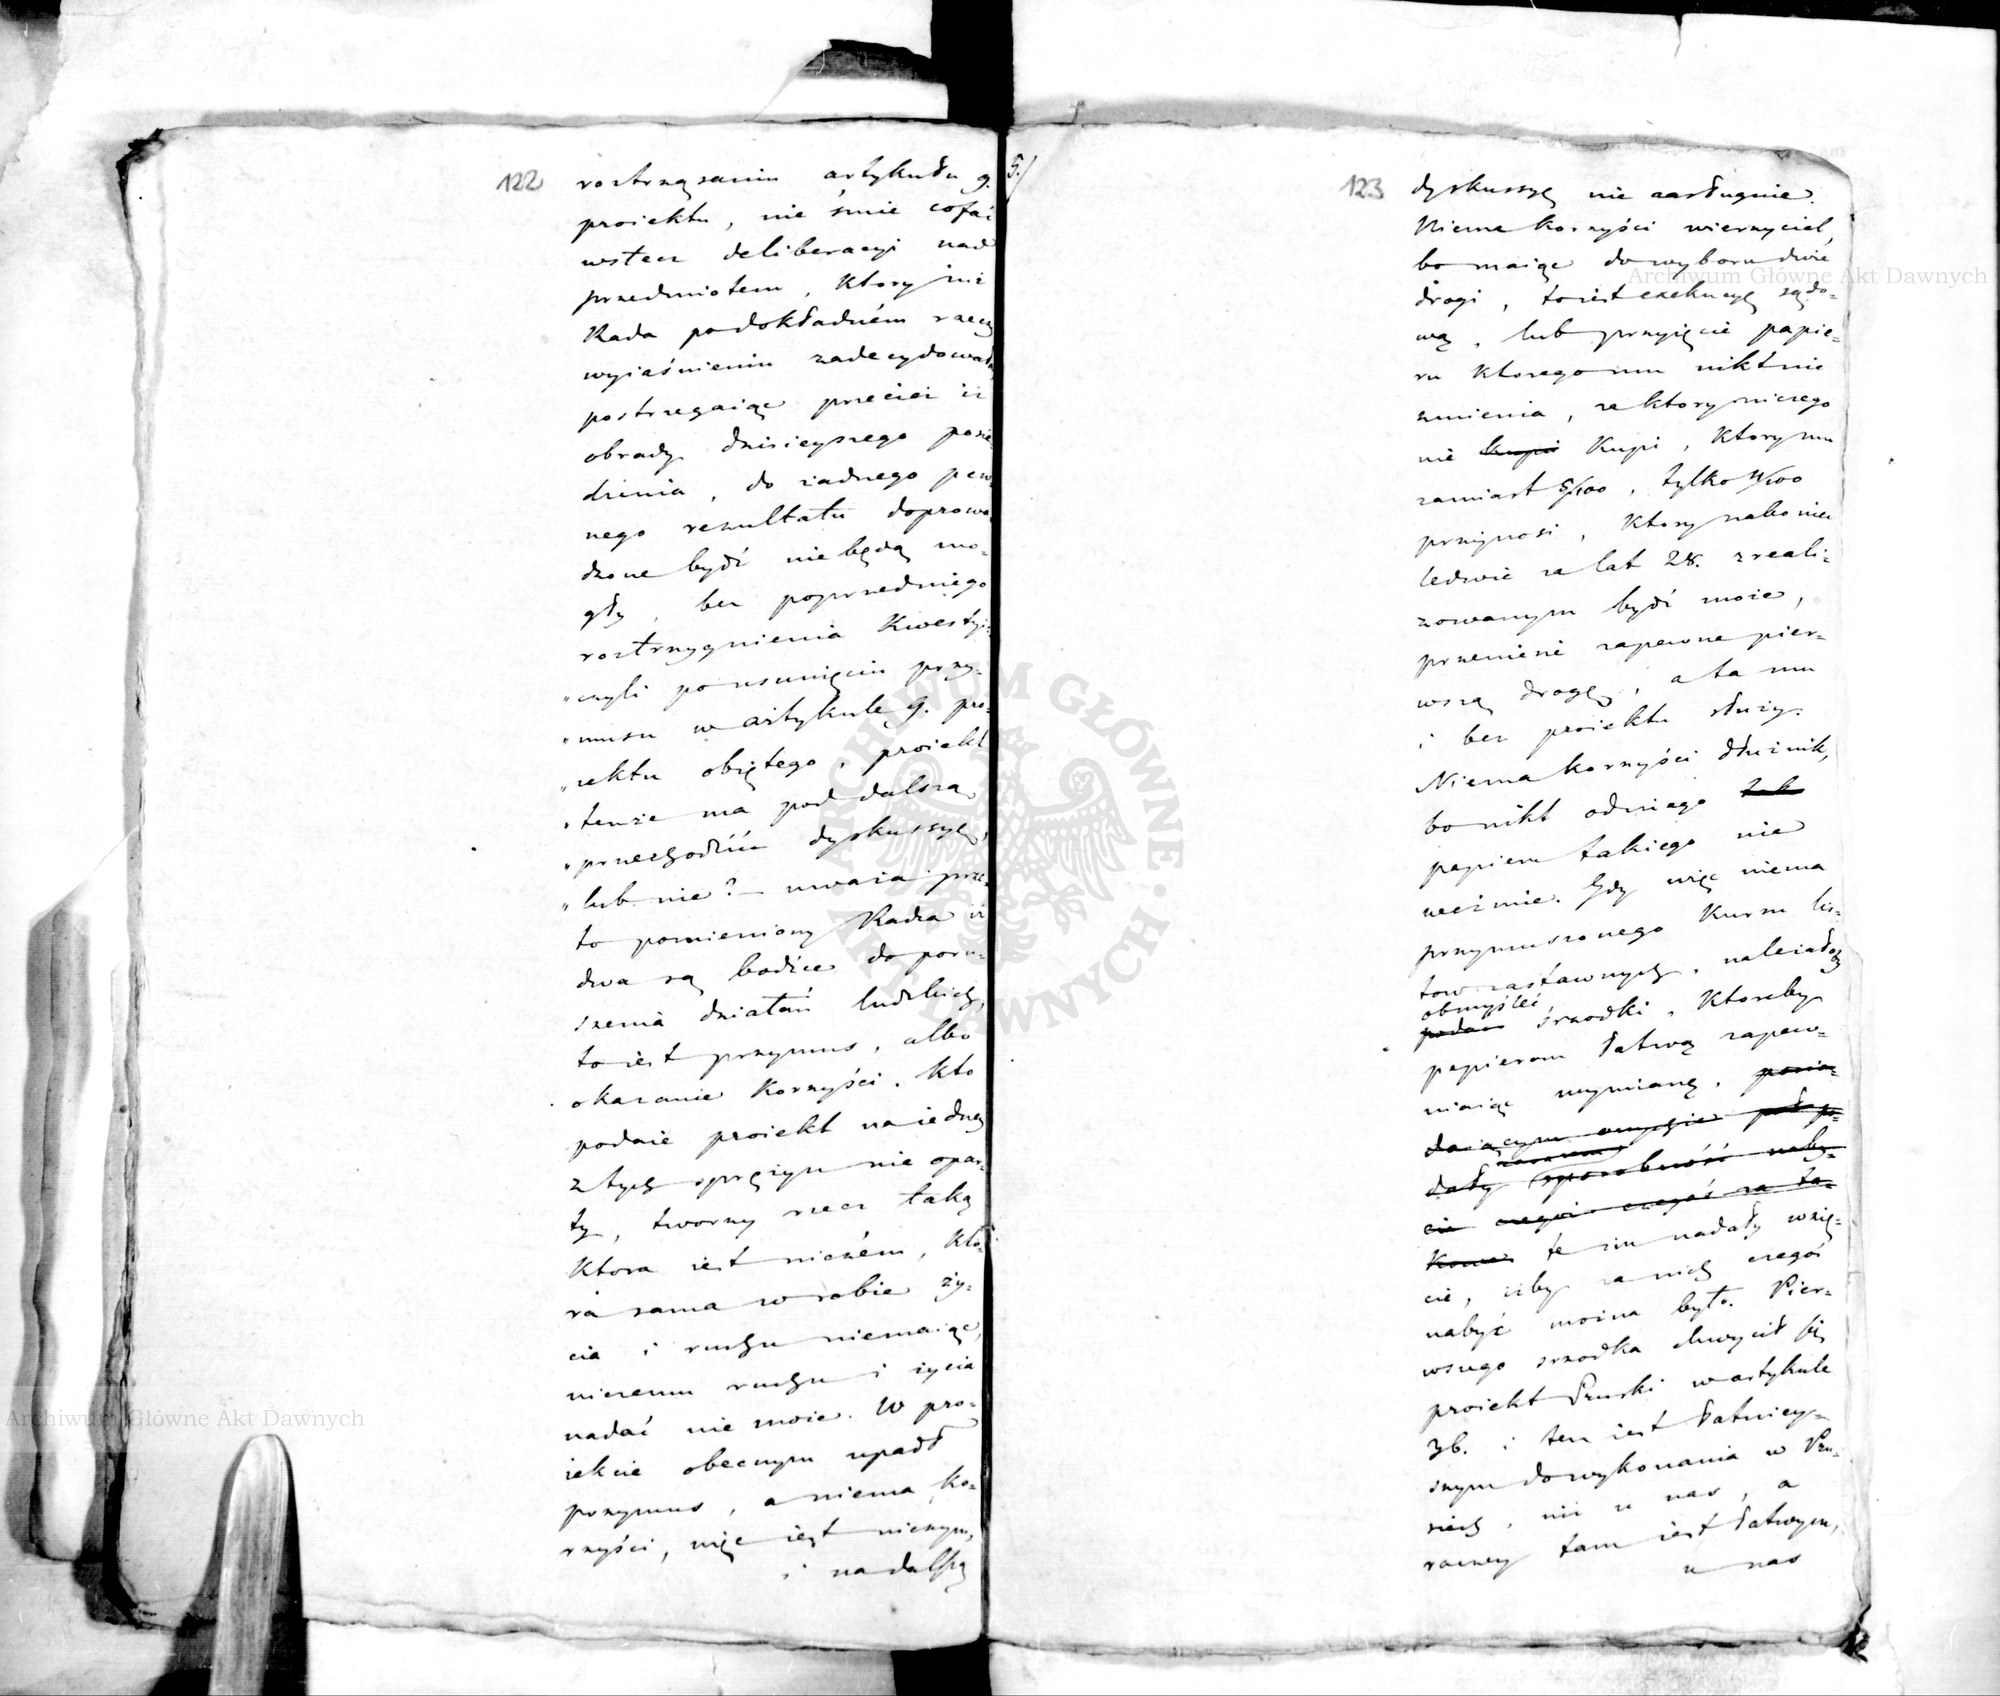 122
roztrząsaniu artykułu 9.
proiektu, nie śmie cofać
wstecz deliberacyi nad
przedmiotem, ktory iuż
Rada podokładném rzeczy
wyiaśnieniu zadecydowała,
postrzegaiąc przecież iż
obrady dzisieyszego posie
dzenia, do żadnego pew
nego rezultatu doprowa
dzone bydź nie będą mo-
gły, bez poprzedniego
roztrzygnienia Kwestyi:
„czyli po usunięciu przy-
„musu w artykule 9. pro-
„iektu obiętego, proiekt
„tenże ma pod dalszą
„przechodzić dyskussyę,
„lub nie? – uważa prze-
to pomieniony Radca iż
dwa są bodźce do poru-
szenia działań ludzkich,
to iest przymus, albo
okazanie Korzyści. Kto
podaie proiekt na iedney
z tych sprężyn nie opar-
ty, tworzy rzecz taką
Ktora iest niczém, Kto-
ra sama w sobie ży-
cia i ruchu niemaiąc,
niczemu ruchu i życia
nadać nie może. W pro-
iekcie obecnym upadł
przymus, a niema Ko-
rzyści, więc iest niczym,
i na dalszą
5./
123
dyskussyę nie zasługuie.
Niema Korzyści wierzyciel,
bo maiąc do wyboru dwie
drogi, to iest exekucyę sądo-
wą, lub przyięcie papie-
ru Ktorego mu nikt nie
zmienia, za ktory niczego
nie kupi Kupi, Ktory mu
zamiast 5/100, tylko 4/100
przynosi, Ktory nakoniec
ledwie za lat 28. zreali-
zowanym bydź może,
przeniesie zapewne pier-
wszą drogę, a ta mu
i bez proiektu służy.
Niema korzyści dłużnik,
bo nikt od niego tak
papieru takiego nie
weźmie. Gdy więc niema
przymuszonego Kursu lis-
tow zastawnych, należałoby
obmyśleć
podać srzodki, Ktoreby
papierom łatwą zapew-
niaiąc wymianę,
te im nadały wzię-
cie, iżby za nich czegoś
nabyć można było. Pier-
wszego srzodka chwycił się
proiekt Pruski w artykule
36. i ten iest łatwiey-
szym do wykonania w Pru-
siech, niż u nas, a
raczey tam iest łatwym,
u nas
Archiwum Główne Akt Dawnych
Archiwum Główne Akt Dawnych
ARCHIWUM GŁÓWNE AKT DAWNYCH